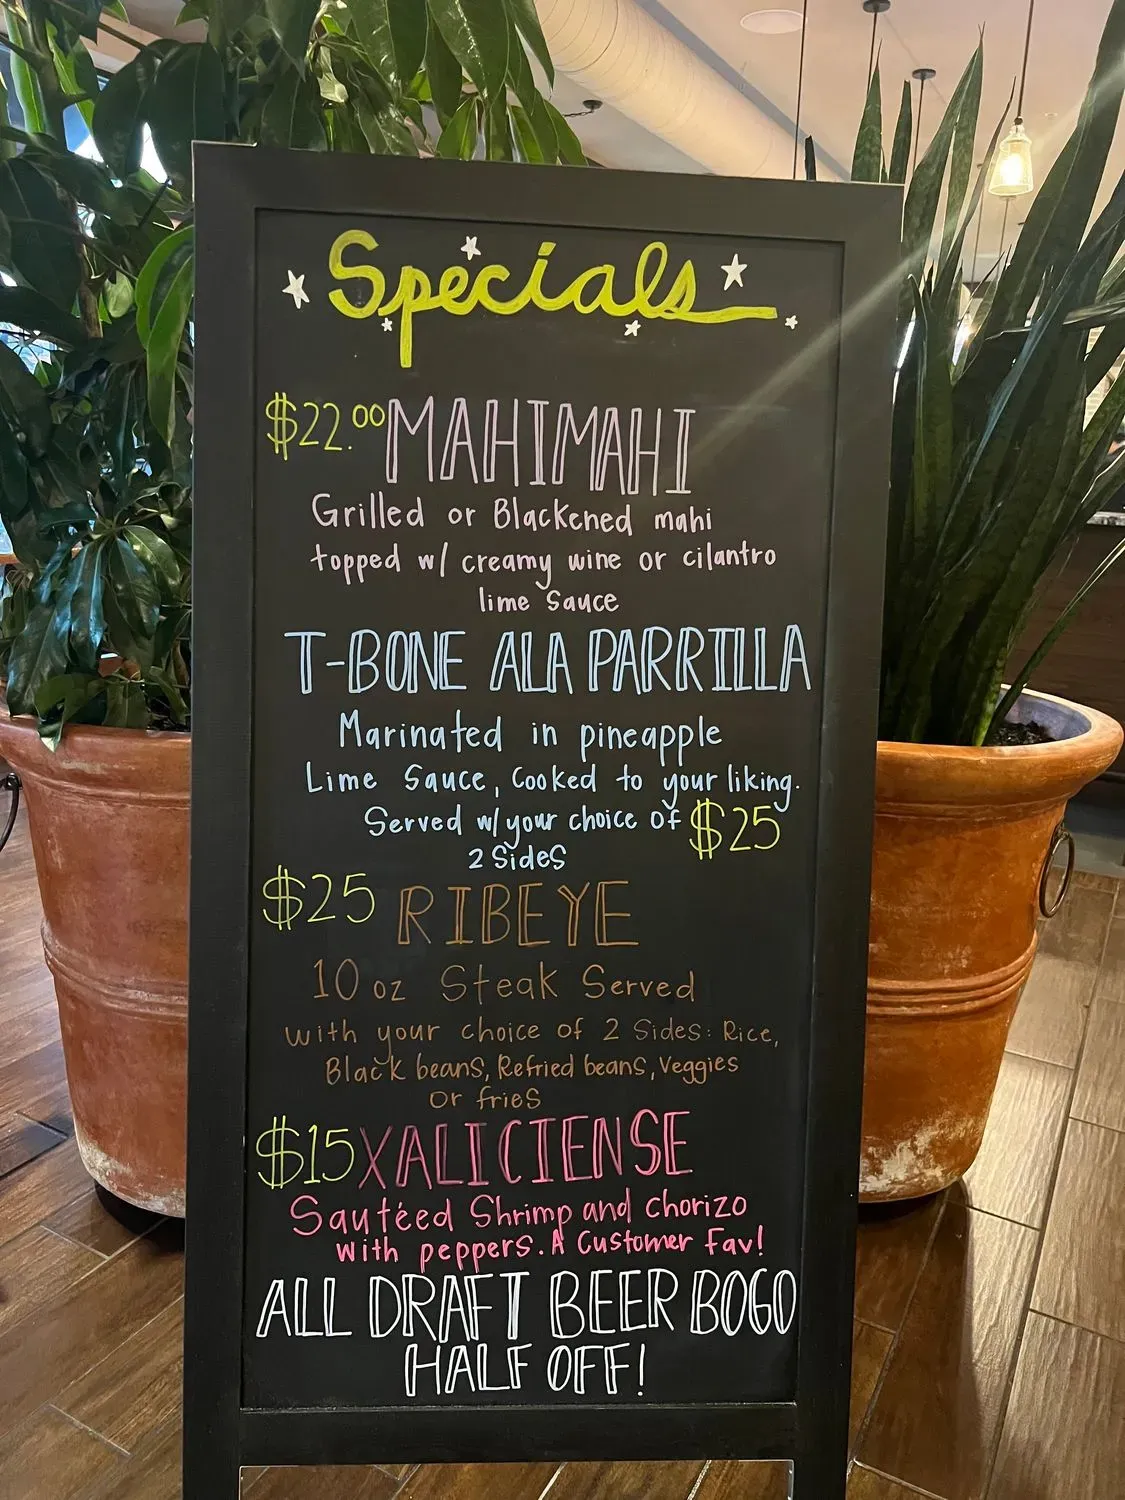 Specials
$22.00 MAHIMAHI
Grilled or Blackened mahi
topped w/ creamy wine or cilantro
lime sauce
T-BONE ALA PARRILLA
Marinated in pineapple
Lime Sauce, Cooked to your liking.
Served w/ your choice of $25
2 Sides
$25 RIBEYE
10 oz Steak Served
with your choice of 2 Sides: Rice,
Black beans, Refried beans, Veggies
or fries
$15 XALICIENSE
Sautéed Shrimp and chorizo
with peppers. A Customer Fav!
ALL DRAFT BEER BOGO
HALF OFF!